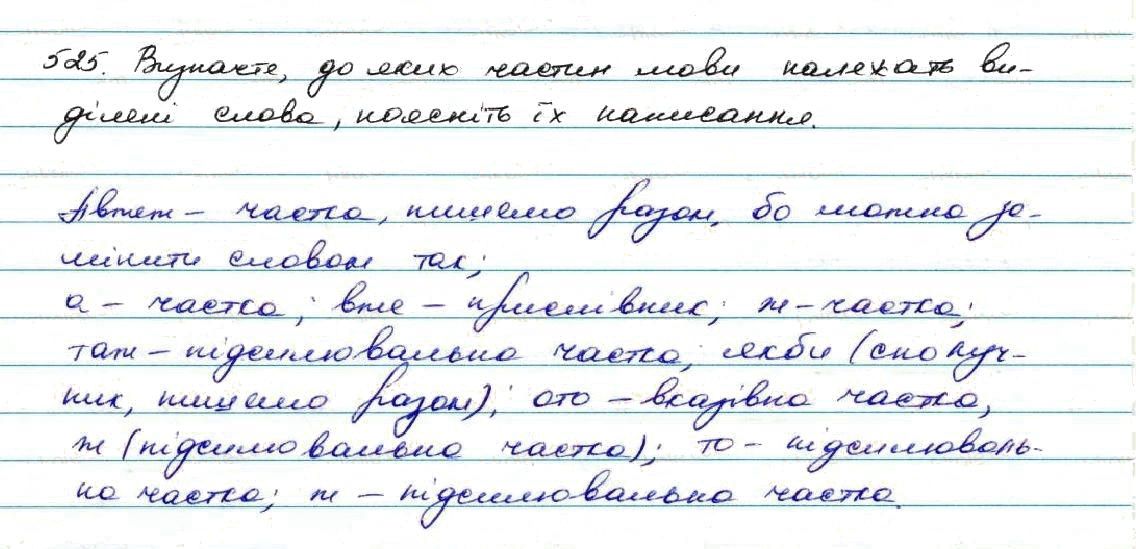 525. Визначте, до яких частин мови належать ви-
ділені слова, поясніть їх написання.
Автеж – частка, пишемо разом, бо можна за-
мінити словом так;
а – частка; вже – прислівник; ж – частка;
таж – підсилювальна частка; якби (сполуч-
ник, пишемо разом); ото – вказівна частка,
ж (підсилювальна частка); то – підсилюваль-
на частка; ж – підсилювальна частка.